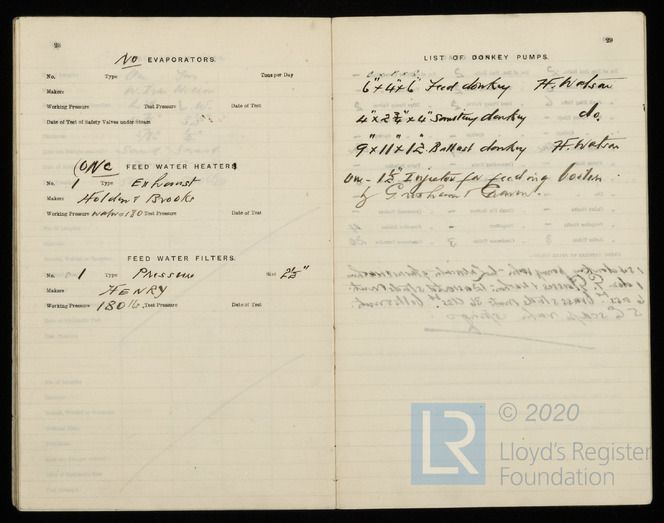 28
No EVAPORATORS.
No. Type Tons per Day
Maker
Working Pressure Test Pressure Date of Test
Date of Test of Safety Valves under Steam
(One FEED WATER HEATERS
No. 1 Type Exhaust
Makers Holden & Brooke
Working Pressure water 180 Test Pressure Date of Test
FEED WATER FILTERS.
No. 1 Type Pressure Size 2½"
Makers HENRY
Working Pressure 180 lb. Test Pressure Date of Test
29
LIST OF DONKEY PUMPS.
6" x 4" x 6" Feed donkey H. Watson
4" x 2¾" x 4" Sanitary donkey do.
9" x 11" x 12" Ballast donkey H. Watson
One - 1½" Injector for feeding boilers
by Gresham & Craven.
© 2020
LR
Lloyd's Register
Foundation